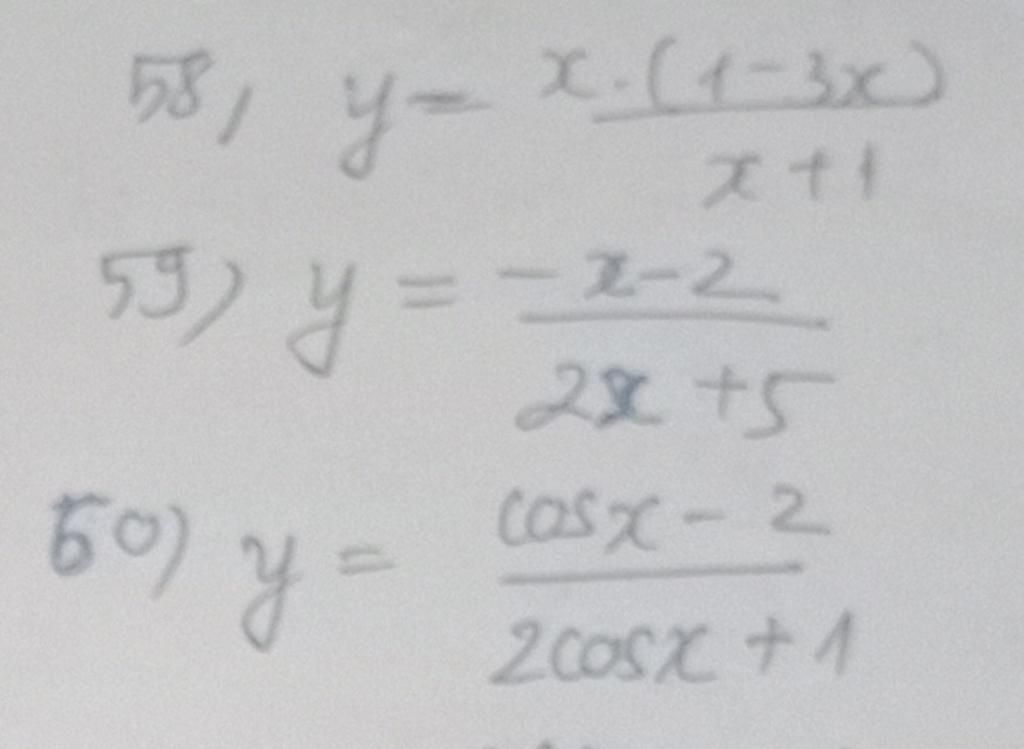 58, y = x·(1-3x) / x+1
59) y = -x-2 / 2x+5
60) y = cosx-2 / 2cosx+1